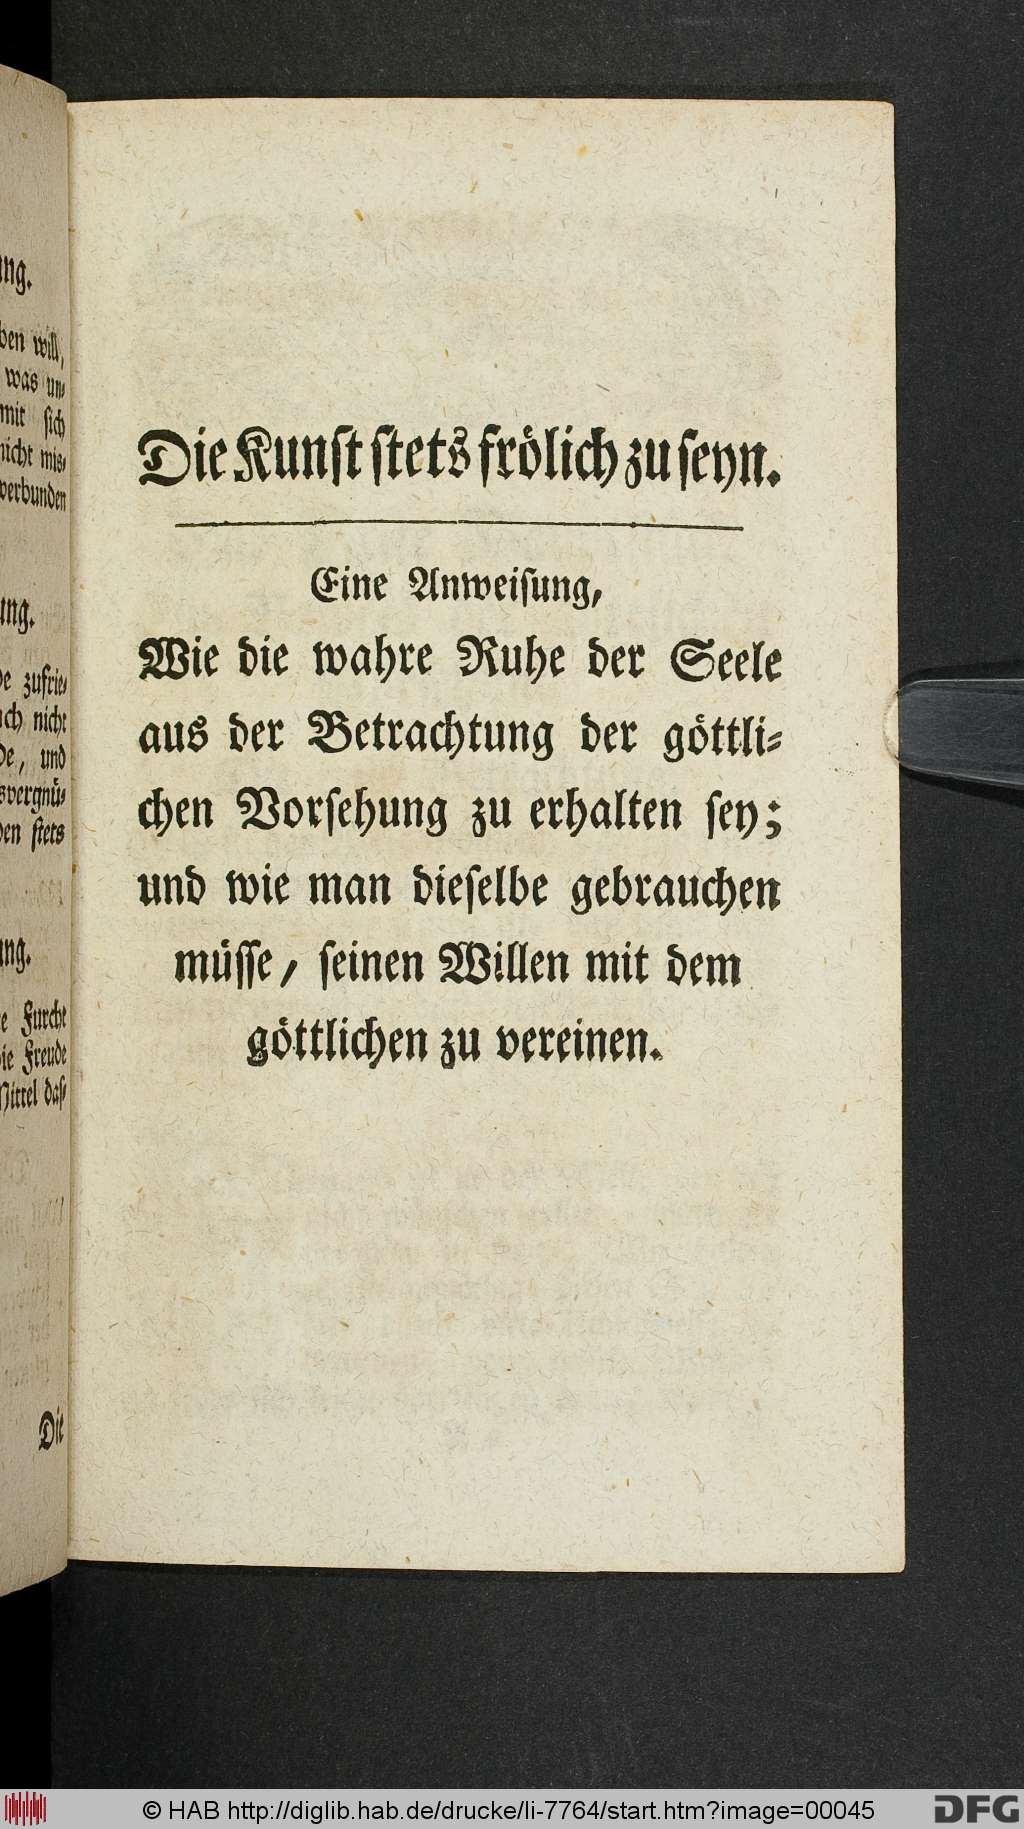 ng.
ben will,
was un-
mit sich
nicht mis-
verbunden
ung.
de zufrie-
uch nicht
de, und
svergnü-
den stets
ung.
e Furcht
ie Freude
Mittel das-
Die
Die Kunst stets frölich zu seyn.
Eine Anweisung,
Wie die wahre Ruhe der Seele
aus der Betrachtung der göttli-
chen Vorsehung zu erhalten sey;
und wie man dieselbe gebrauchen
müsse, seinen Willen mit dem
göttlichen zu vereinen.
© HAB http://diglib.hab.de/drucke/li-7764/start.htm?image=00045
DFG